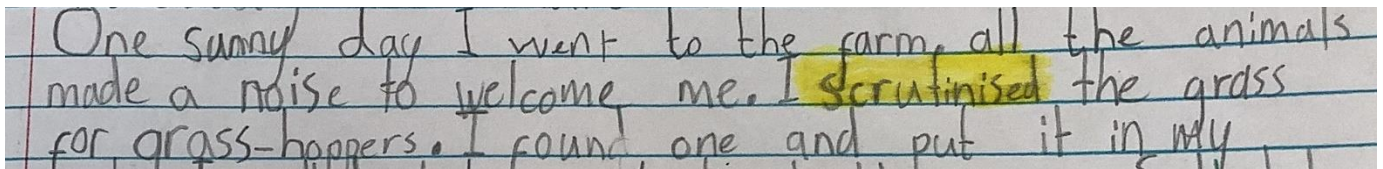 One sunny day I went to the farm, all the animals
made a noise to welcome me. I scrutinised the grass
for grass-hoppers. I found one and put it in my